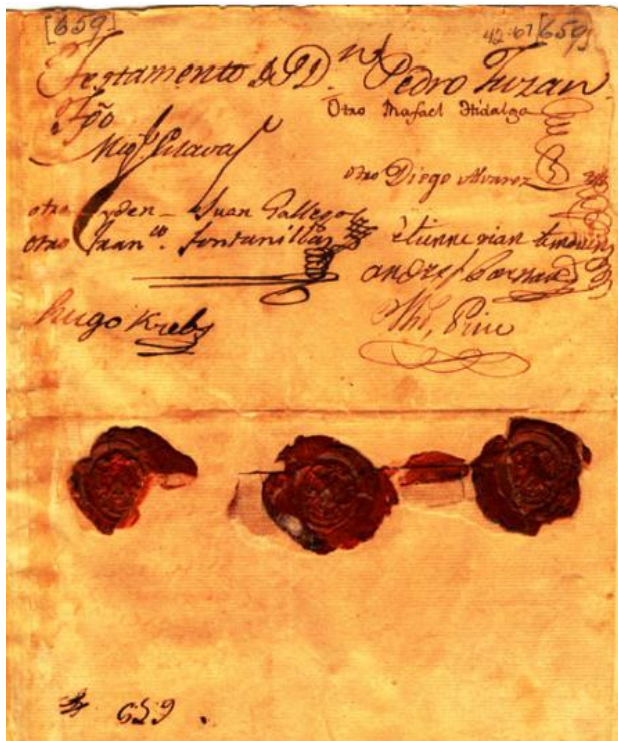 [659] 42:67 [659]
Testamento de D.n Pedro Tuzan
Otro Rafael Hidalgo
Tgo
Mig.l Eslava
otro Diego Alvarez
otro yden – Juan Gallego
otro Fran.co Fontanillas
étienne rian temoin
andres Bernard
Hugo Krebs
Tho.s Price
659.